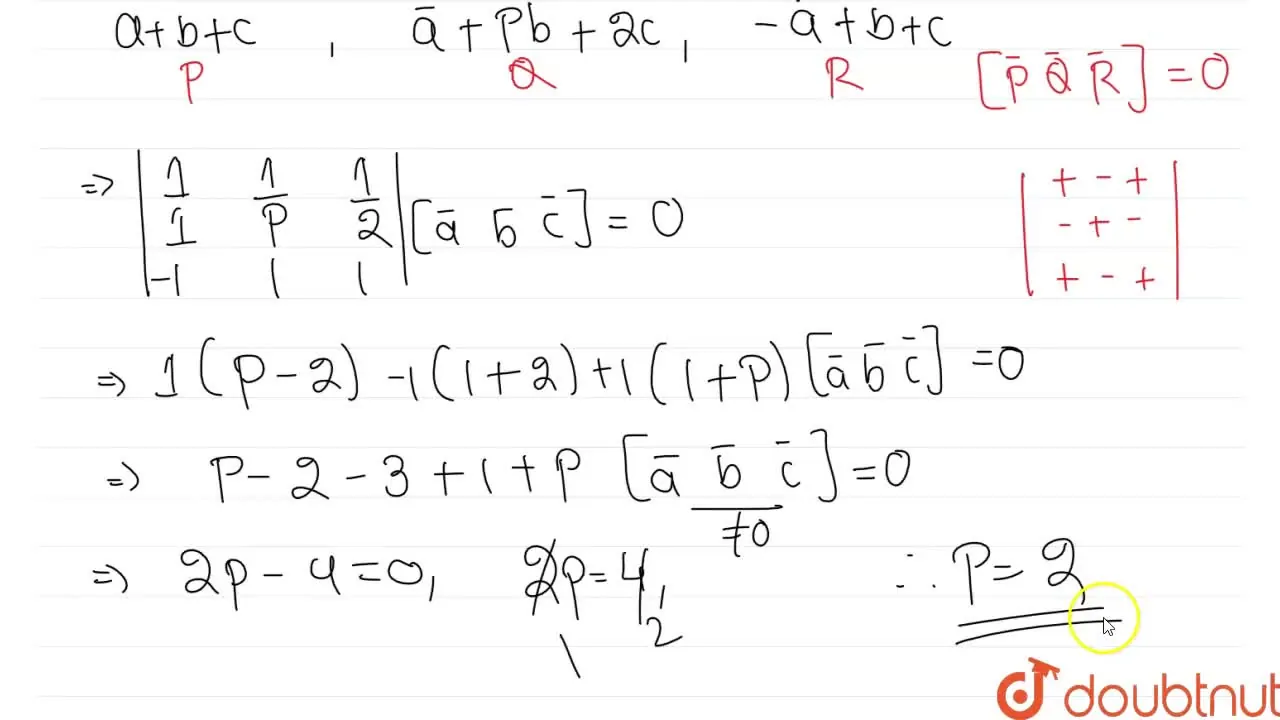 a+b+c , ā+Pb+2c, -a+b+c
P Q R [P̄ Q̄ R̄] = 0
=> | 1 1 1 | [ā b̄ c̄] = 0
| 1 P 2 |
| -1 1 1 |
| + - + |
| - + - |
| + - + |
=> 1(P-2) -1(1+2)+1(1+P)[ā b̄ c̄] =0
=> P-2-3+1+P [ā b̄ c̄]=0
≠0
=> 2p-4=0, 2p=4, ∴ P=2
1 2
doubtnut